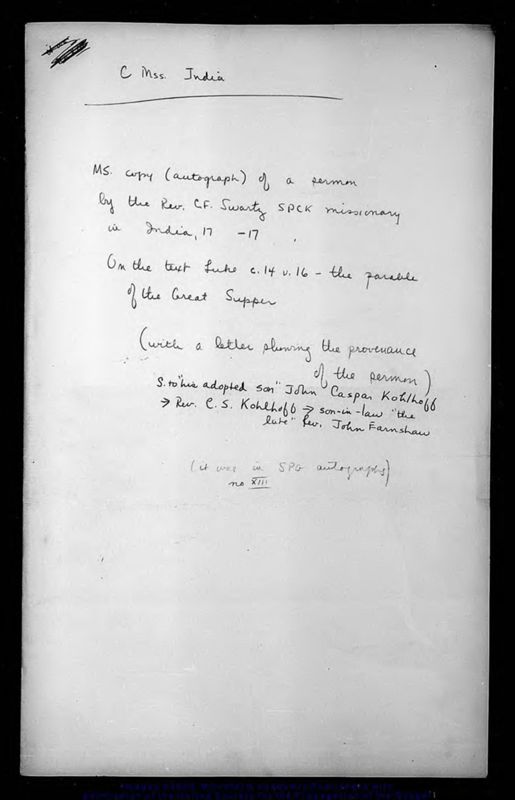 C Mss. India
MS. copy (autograph) of a sermon
by the Rev. C.F. Swartz SPCK missionary
in India, 17 -17 .
On the text Luke c.14 v.16 - the parable
of the Great Supper
(with a letter showing the provenance
of the sermon)
S. to "his adopted son" John Caspar Kohlhoff
→ Rev. C. S. Kohlhoff → son-in-law "the
late" Rev. John Earnshaw
(it was in SPG autographs)
no XIII